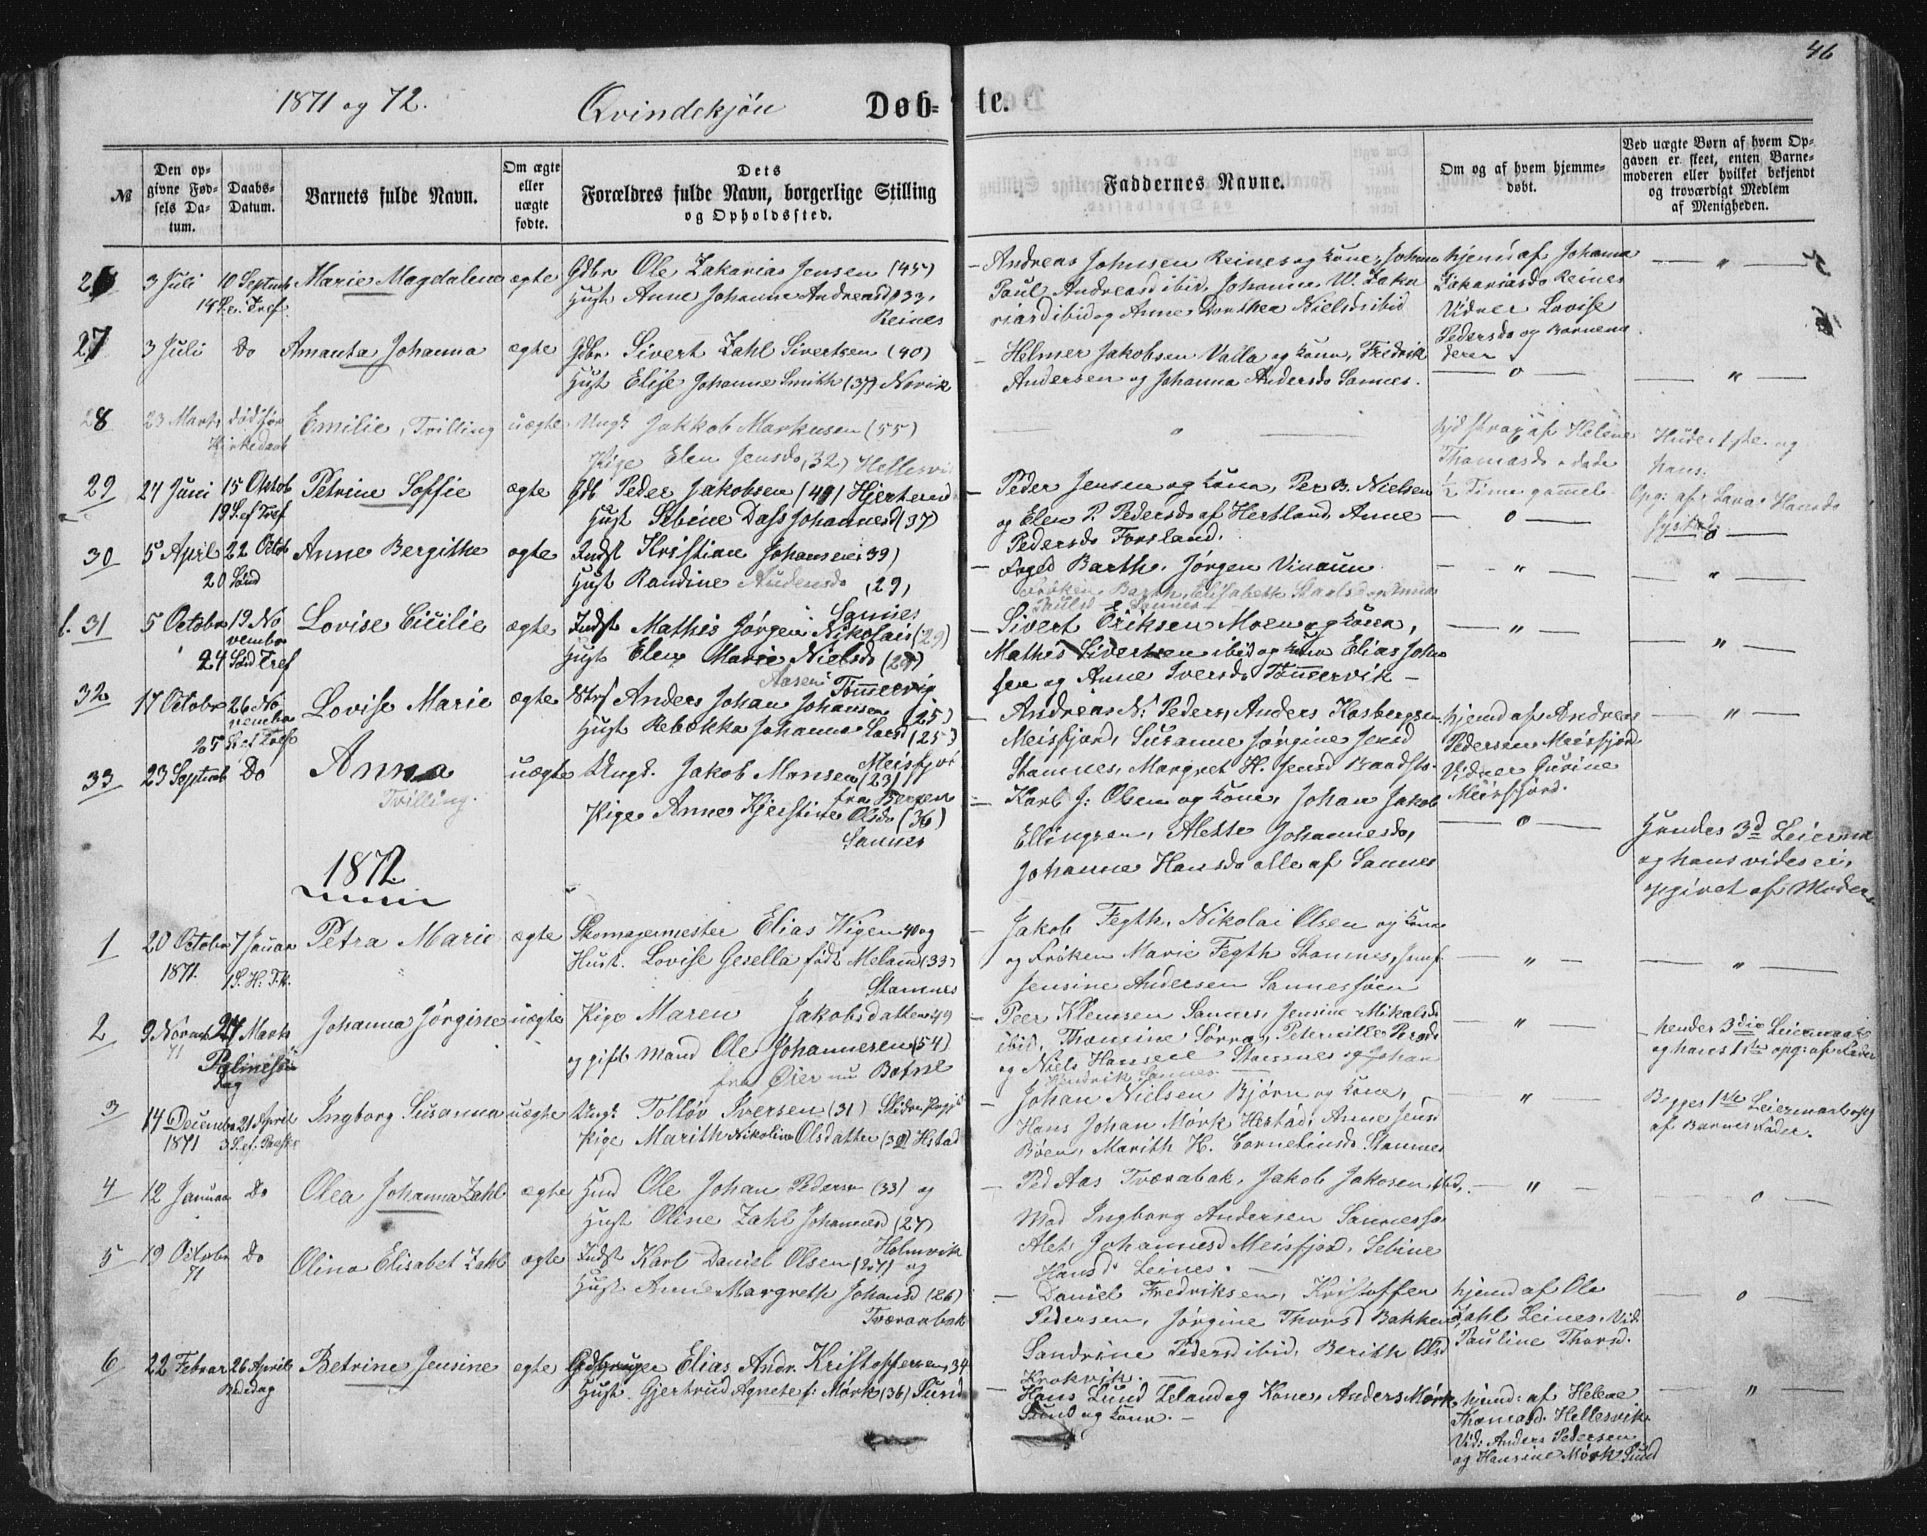 46
1871 og 72.
Qvindekjøn
Døb-
te.
№
Den op-
givne Fød-
sels Da-
tum.
Daabs-
Datum.
Barnets fulde Navn.
Om ægte
eller
uægte
fødte.
Dets
Forældres fulde Navn, borgerlige Stilling
og Opholdssted.
Faddernes Navne.
Om og af hvem hjemme-
døbt.
Ved uægte Børn af hvem Op-
gaven er skeet, enten Barne-
moderen eller hvilket bekjendt
og troværdigt Medlem
af Menigheden.
26
3 Juli
10 Septemb
Marie Magdalena
ægte
Gdbr Ole Zakarias Jensen (45)
Hust Anne Johanne Andreasd (33)
Reines
Andreas Johnsen Reines og Kone, Johan
Paul Andreasd ibid, Johanna W. Zaka
riasd ibid og Anne Dorthea Nielsd ibid
hjemd af Johanna
Zakariasd Reines
Vidner Lovise
Pedersd og Barnemo
deren
27
3 Juli
Do
Amanta Johanna
ægte
Gdbr Sivert Zahl Sivertsen (40)
Hust Elise Johanne Smith (37) Novik
Helmer Jakobsen Valla og Kone, Fredrik
Andersen og Johanna Andersd Sannes.
28
23 Marts
dødsfør
Emilie, Trilling
uægte
Ungk Jakkob Markusen (55)
Pige Elen Jensd (32) Hellesvi
hjd strax af Helene
Thomasd. døde
1/2 Time gammel.
Opg: af Lava Hansd
29
24 Juni
15 Oktob
19 S. ef Tref
Petrine Soffie
ægte
Gdb Peder Jakobsen (41) Hjerten
Hust Sebine Dass Johannesd (37)
Peder Jensen og Kone, Per B. Nielsen
og Elen P. Pedersd af Hertland, Anne
Pedersd Forsland.
30
5 April
22 Octob
20 Sønd
Anne Bergithe
ægte
Indst Kristian Johansen (39)
Hust Randine Andersd (29)
Sannes
Foged Barth, Jørgen Vinaun
Frøken Barth, Elisabeth
31
5 Octobr
19 No
vembr
24 Sød Tref
Lovise Cicilie
ægte
Indst Mathis Jørgen Nikolais (29)
Hust Elen Marie Nielsd (29)
Tømmervig
Sivert Eriksen Moen og Kone,
Mathis Sivertsen ibid og Kone Elias John
sen og Anne Iversd Tømmervik
32
17 Octobr
26 No
vembr
25 S. ef Tref
Lovise Marie
ægte
Anders Johan Johansen (25)
Hust Rebækka Johanna Larsd (25)
Meisfjor
Andreas N. Peders, Anders Hosbergsen
Meisfjord, Susanne Jørgine Jensd
Stamnes, Margret H. Jensd
hjemd af Andreas
Pedersen Meisfjord
Vidner Gurine
Meisfjord.
33
23 Septemb
Do
Anna
Tvilling.
uægte
Ungk. Jakob Monsen (23)
fra Bergen
Pige Anne Kjerstine Olsd (36)
Sannes
Karl J. Olsen og Kone, Johan Jakob
Ellingsen, Alette Johannesd,
Johanne Hansd alle af Sannes
Hendes 3d Leierm
og hans vides ei,
opgivet af Moder
1872
1
20 Octobr
1871.
7 Januar
1 S. H. 3 K.
Petra Marie
ægte
Skomagermester Elias Wigen 40 og
Hust. Lovise Gesella født Meland (33)
Stamnes
Jakob Fegth, Nikolai Olsen og Kone
og Frøken Marie Fegth Stamnes, Jomf
Jensine Andersen Sannessøen
2
9 Novemb
71
24 Marts
Palmesøn
dag
Johanna Jørgine
uægte
Pige Maren Jakobsdatter 49
og gift Mand Ole Johannesen (54)
fra Øier nu Botne
Peer Klemsen Sannes, Jensine Mikalsd
ibid, Thomine Sørra, Peternille Persd
og Niels Hansen Stamnes og Johan
Hendrik Sannes
hendes 3die Leiermaal
og hans 1ste opg: af Fader
3
14 Decembr
1871
21 April
3 S. ef. Paaske
Ingborg Susanna
uægte
Ungk. Tolløv Iversen (31)
Pige Marith Nikoline Olsdatter (32) Hstad
Johan Nielsen Bjørn og Kone,
Hans Johan Mørk Hestad, Anne Jensd
Bøen, Marith H. Corneliusd Stamnes
Begges 1ste Leiermaal opg
af Barnets Fader.
4
12 Januar
Do
Olea Johanna Zahl
ægte
Hmd Ole Johan Peders (33) og
Hust Oline Zahl Johannesd (27)
Holmvik
Ped Aas Tværabak, Jakob Jakosen ibd,
Mad Ingborg Andersen Sannessø
Alet Johannesd Meisfjord, Sebine
Hansd Leines.
5
19 Octobr
71
Do
Olina Elisabet Zahl
ægte
Indst Karl Daniel Olsen (27) og
Hust Anne Margreth Johansd (26)
Tværaabak
Daniel Fredriksen, Kristoffer
Pedersen, Jørgine Thorsd Bakken,
Sandrine Pedersd ibid, Berith Olsd
Krokvik.
hjemd af Ole
Zahl Leines, Vid:
Pauline Thorsd.
6
22 Februar
26 April
Bededag
Petrine Jensine
ægte
Gdbruger Elias Andr. Kristoffersen 34
Hust. Gjertrud Agnete f. Mørk (36) Sund
Hans Lund Leland og Kone, Anders Mørk
Sund og Kone.
hjemd: af Helene
Thomasd. Hellesvik
Vid: Anders Pedersen
og Hansine Mørk Sund